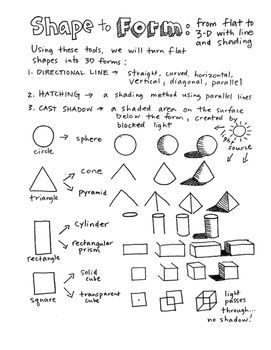 Shape to Form: from flat to
3-D with line
and shading
Using these tools, we will turn flat
shapes into 3D forms:
1. DIRECTIONAL LINE → straight, curved, horizontal,
vertical, diagonal, parallel
2. HATCHING → a shading method using parallel lines
3. CAST SHADOW → a shaded area on the surface
below the form, created by
blocked light
light
source
circle
sphere
triangle
cone
pyramid
rectangle
cylinder
rectangular
prism
square
solid
cube
transparent
cube
light
passes
through...
no shadow!